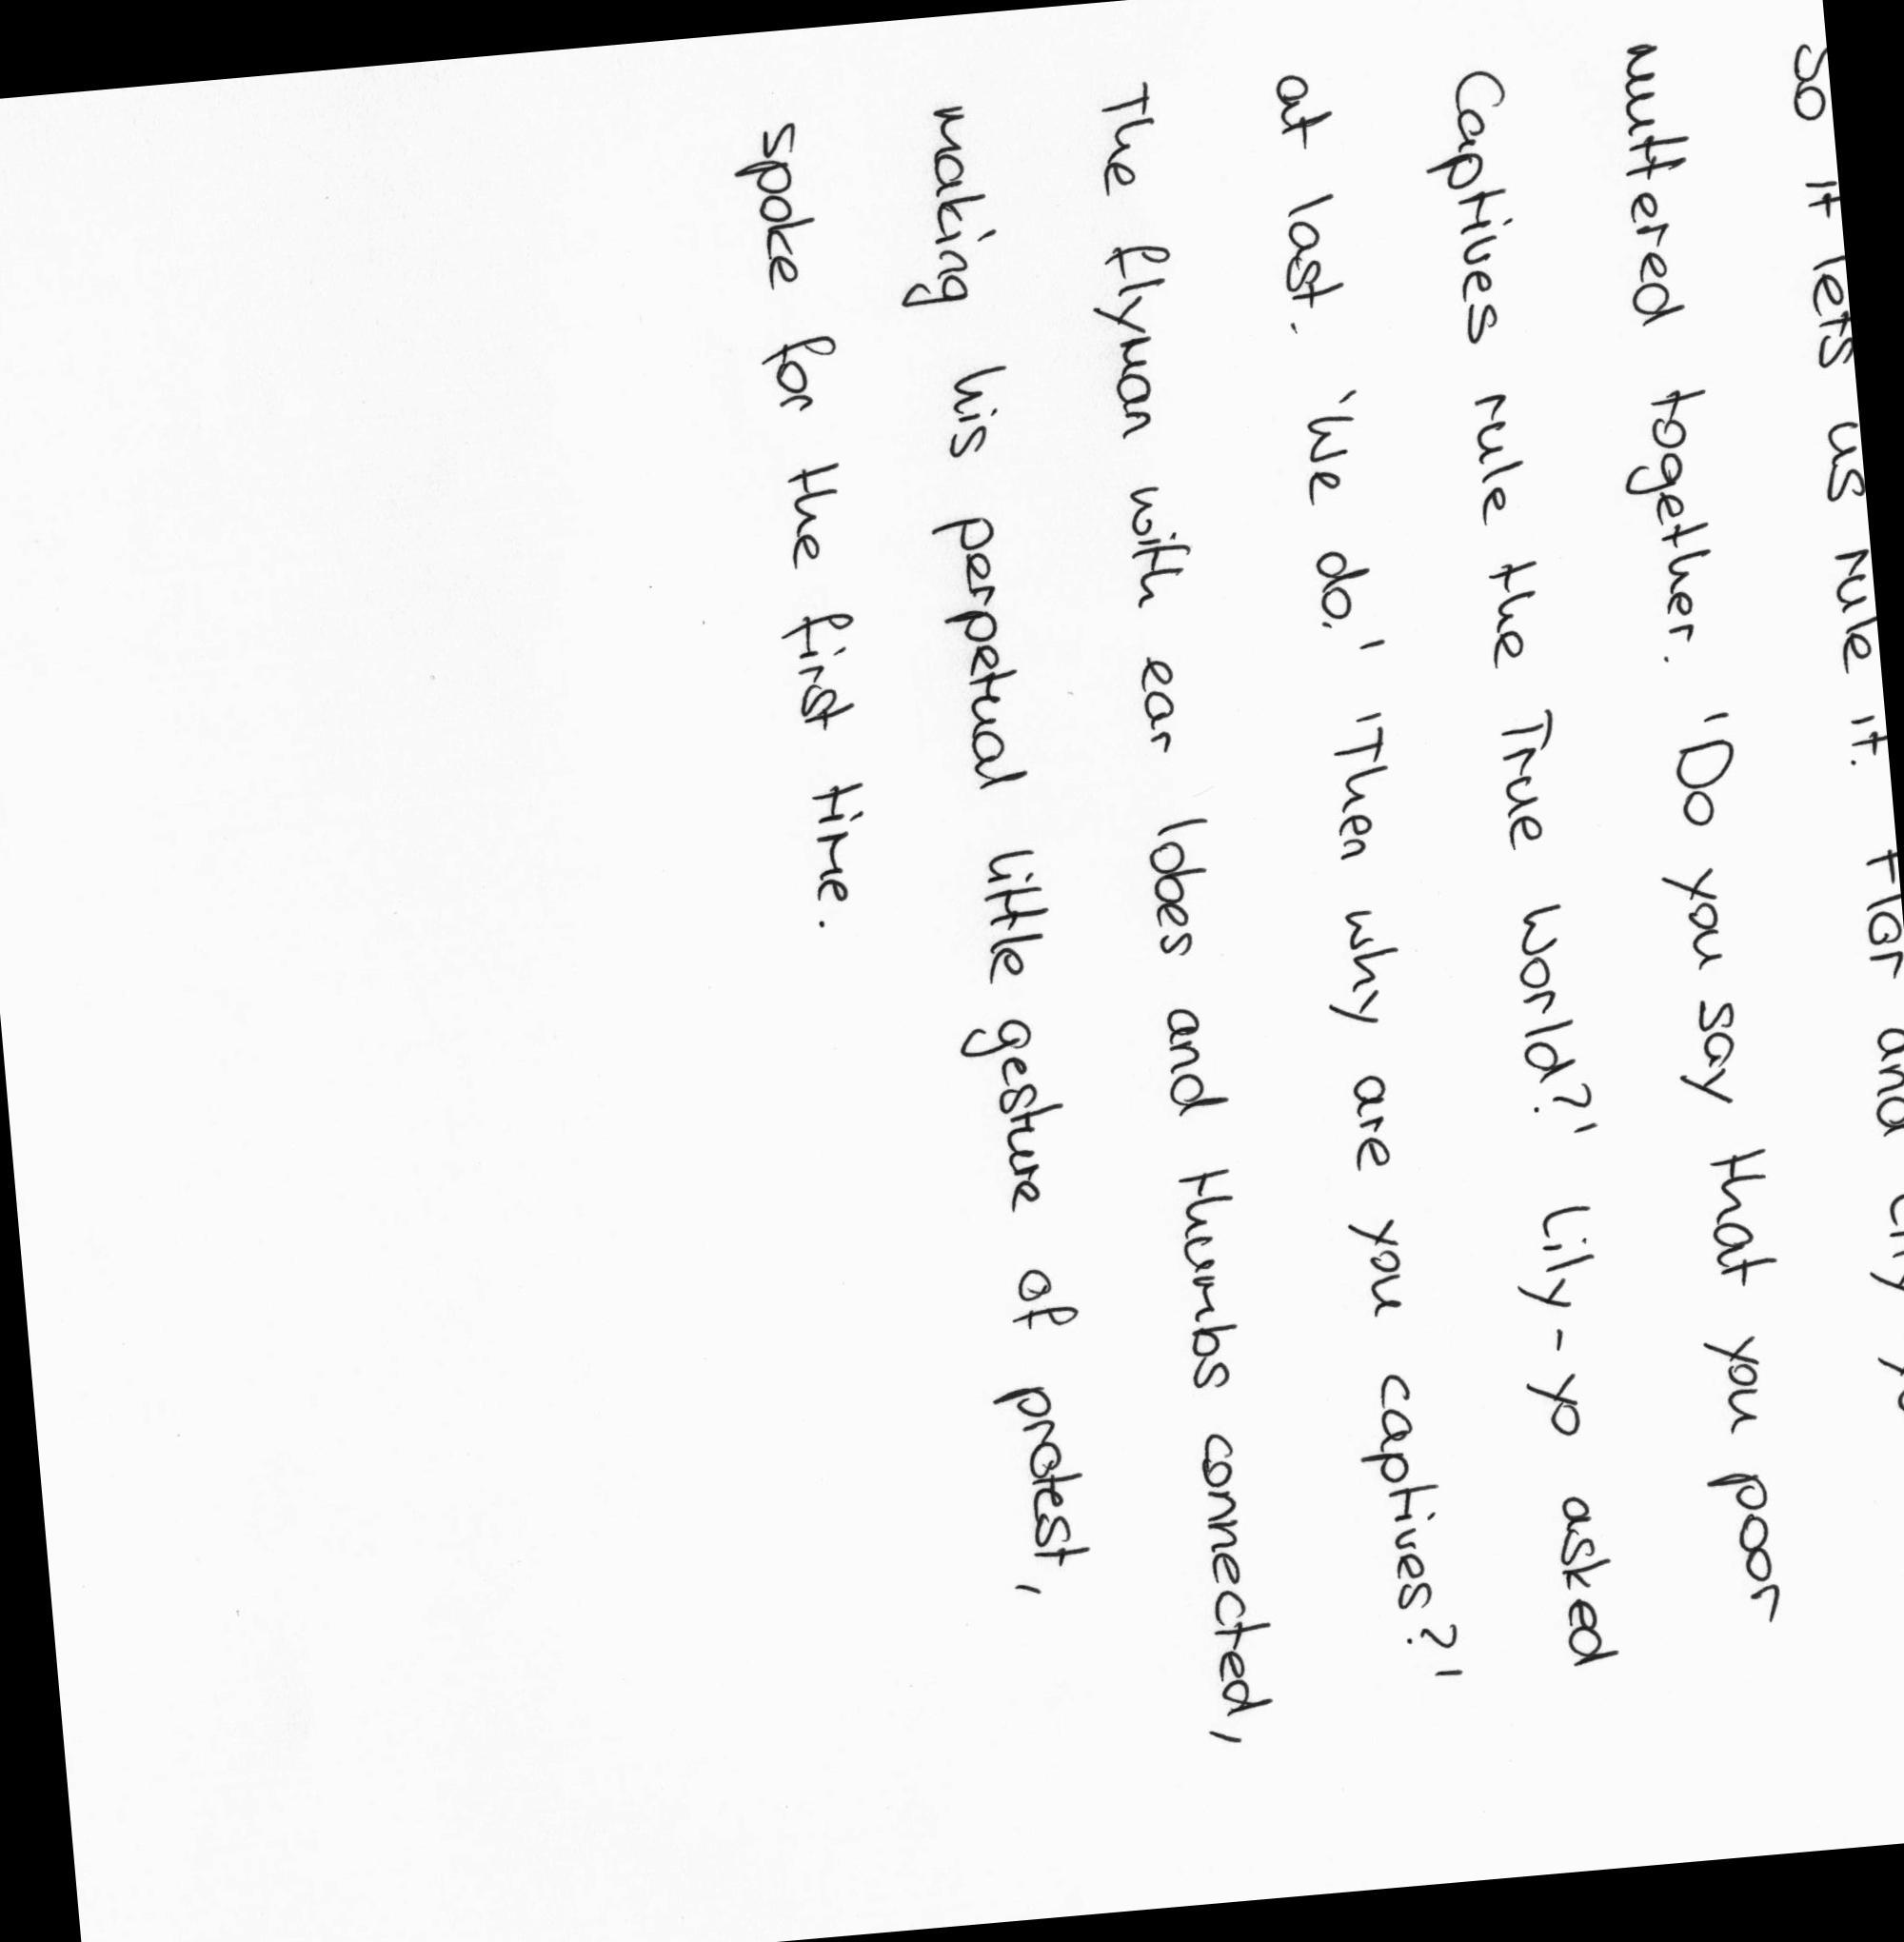 So it lets us rule it. Flor and Lily
muttered together. "Do you say that you poor
Captives rule the True World?' Lily-yo asked
at last. 'We do.' 'Then why are you captives?'
The flyman with ear lobes and thumbs connected,
making his perpetual little gesture of protest,
spoke for the first time.